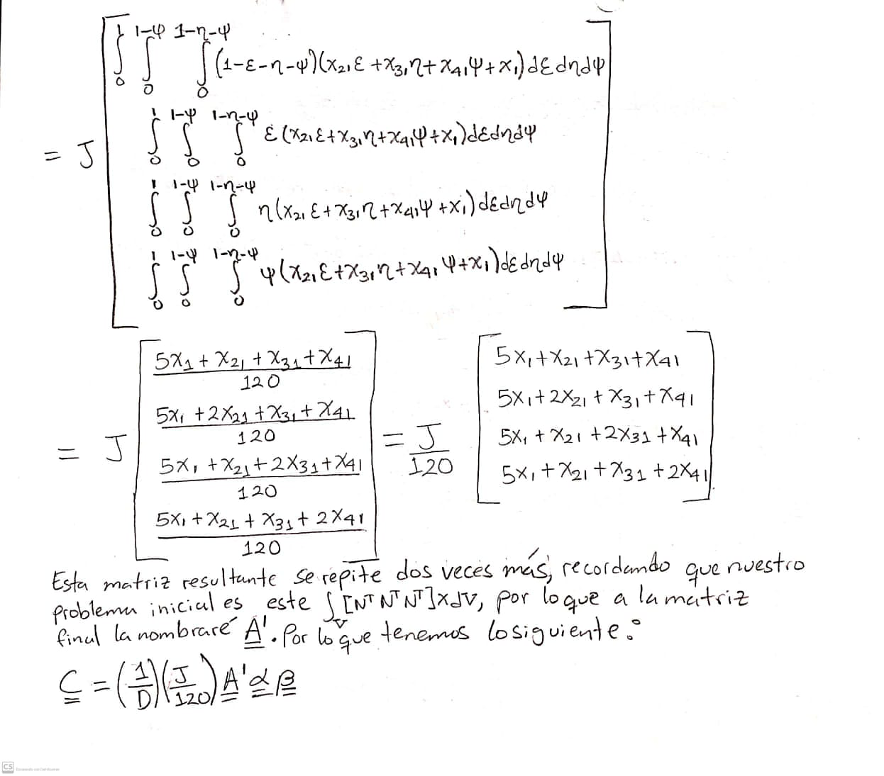 ∫₀¹ ∫₀^(1-ψ) ∫₀^(1-η-ψ) (1-ε-η-ψ)(x₂₁ε + x₃₁η + x₄₁ψ + x₁)dεdηdψ
= J ∫₀¹ ∫₀^(1-ψ) ∫₀^(1-η-ψ) ε(x₂₁ε + x₃₁η + x₄₁ψ + x₁)dεdηdψ
∫₀¹ ∫₀^(1-ψ) ∫₀^(1-η-ψ) η(x₂₁ε + x₃₁η + x₄₁ψ + x₁)dεdηdψ
∫₀¹ ∫₀^(1-ψ) ∫₀^(1-η-ψ) ψ(x₂₁ε + x₃₁η + x₄₁ψ + x₁)dεdηdψ
= J [ (5x₁ + x₂₁ + x₃₁ + x₄₁)/120
(5x₁ + 2x₂₁ + x₃₁ + x₄₁)/120
(5x₁ + x₂₁ + 2x₃₁ + x₄₁)/120
(5x₁ + x₂₁ + x₃₁ + 2x₄₁)/120 ]
= J/120 [ 5x₁ + x₂₁ + x₃₁ + x₄₁
5x₁ + 2x₂₁ + x₃₁ + x₄₁
5x₁ + x₂₁ + 2x₃₁ + x₄₁
5x₁ + x₂₁ + x₃₁ + 2x₄₁ ]
Esta matriz resultante se repite dos veces más, recordando que nuestro
problema inicial es este ∫ᵥ [Nᵀ Nᵀ Nᵀ]xdV, por lo que a la matriz
final la nombraré A'. Por lo que tenemos lo siguiente:
C = (1/D)(J/120) A' α β
CS